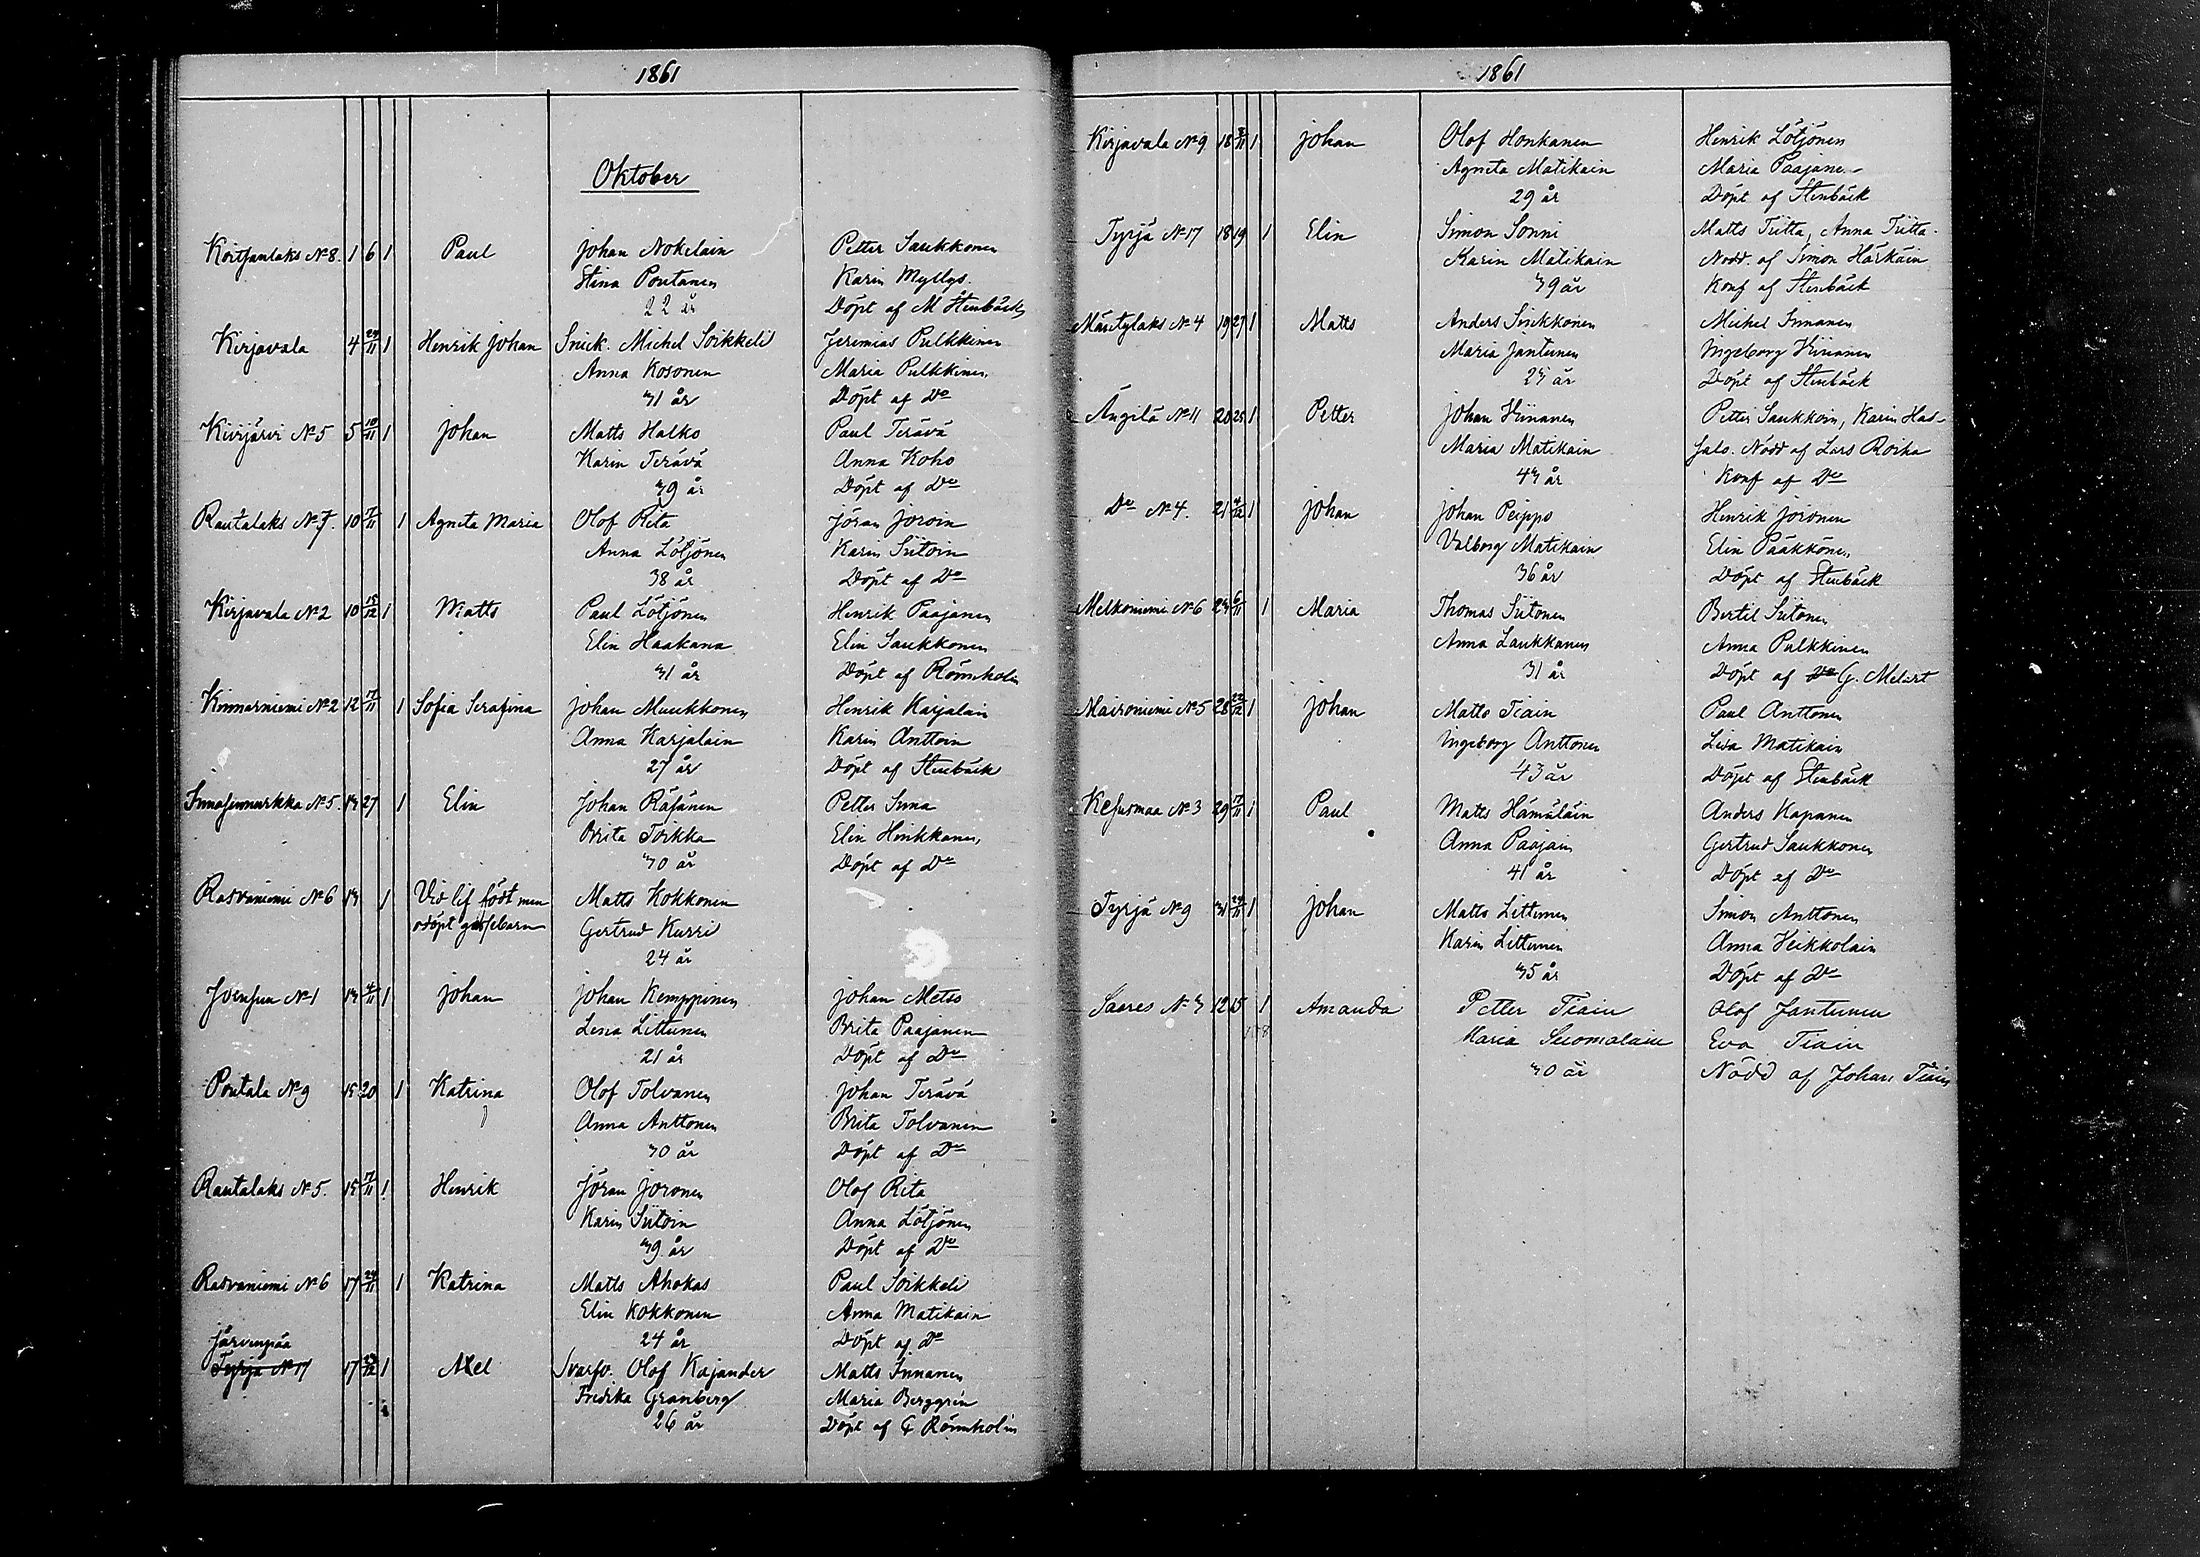 1861
Oktober
Koitsanlaks № 8. 1 6 1 Paul Johan Nokelain Petter Saukkonen
Stina Pontanen Karin Myllys.
22 år Döpt af M Stenbäck
Kirjavala 4 24/11 1 Henrik Johan Snick. Michel Soikkeli Jeremias Pulkkinen
Anna Kosonen Maria Pulkkinen
31 år Döpt af Do
Kivijärvi № 5 5 10/11 1 Johan Matts Halko Paul Terävä
Karin Terävä Anna Koho
39 år Döpt af Do
Rautalaks № 7. 10 17/11 1 Agneta Maria Olof Rita Jöran Joroin
Anna Lötjönen Karin Siitoin
38 år Döpt af Do
Kirjavala № 2 10 15/12 1 Matts Paul Lötjönen Henrik Paajanen
Elin Haakana Elin Saukkonen
31 år Döpt af Rönnholm
Kinnarniemi № 2 12 17/11 1 Sofia Serafina Johan Muukkonen Henrik Karjalain
Anna Karjalain Karin Anttoin
27 år Döpt af Stenbäck
№ 5. 13 27 1 Elin Johan Räsänen Petter Inna
Brita Toikka Elin Hinkkanen
30 år Döpt af Do
Rasvaniemi № 6 13 1 Vid lif född men Matts Kokkonen
odöpt gossebarn Gertrud Kurri
24 år
Joensuu № 1 13 4/11 1 Johan Johan Kemppinen Johan Metso
Lena Littunen Brita Paajanen
21 år Döpt af Do
Poutala № 9 15 20 1 Katrina Olof Tolvanen Johan Terävä
Anna Anttonen Brita Tolvanen
30 år Döpt af Do
Rautalaks № 5. 15 17/11 1 Henrik Jöran Joronen Olof Rita
Karin Siitoin Anna Lötjönen
39 år Döpt af Do
Rasvaniemi № 6 17 24/11 1 Katrina Matts Ahokas Paul Soikkeli
Elin Kokkonen Anna Matikain
24 år Döpt af Do
Järvenpää
Tyrjä № 17 17 1 Axel Svarfv. Olof Kajander Matts Innanen
Fredrika Granberg Maria Berggrén
26 år Döpt af G Rönnholm
1861
Kirjavala № 9 18 3/11 1 Johan Olof Honkanen Henrik Lötjönen
Agneta Matikain Maria Paajanen
29 år Döpt af Stenbäck
Tyrjä № 17 18 19 1 Elin Simon Sonni Matts Tiitta, Anna Tiitta.
Karin Matikain Nödd. af Simon Härkäin
39 år Konf af Stenbäck
Märitylaks № 4 19 27 1 Matts Anders Sinkkonen Michel Innanen
Maria Jantunen Ingeborg Hinanen
23 år Döpt af Stenbäck
Ängilä № 11 20 25 1 Petter Johan Hinanen Petter Saukkoin, Karin Has-
Maria Matikain Nödd af Lars Roika
43 år Konf af Do
Do № 4. 21 4/12 1 Johan Johan Peippo Henrik Joronen
Valborg Matikain Elin Pääkkönen
36 år Döpt af Stenbäck
Melkoniemi № 6 23 6/11 1 Maria Thomas Siitonen Bertil Siitonen
Anna Laukkanen Anna Pulkkinen
31 år Döpt af Do G. Melart
Maironiemi № 5 28 22/12 1 Johan Matts Tiain Paul Anttonen
Ingeborg Anttonen Lisa Matikain
43 år Döpt af Stenbäck
Kesusmaa № 3 29 17/11 1 Paul Matts Hämäläin Anders Kapanen
Anna Paajain Gertrud Saukkonen
41 år Döpt af Do
Tyrjä № 9 31 24/11 1 Johan Matts Littunen Simon Anttonen
Karin Littunen Anna Heikkolain
35 år Döpt af Do
Saares № 3 12 15 1 Amanda Petter Tiain Olof Jantunen
Maria Suomalain Eva Tiain
30 år Nödd af Johan Tiain